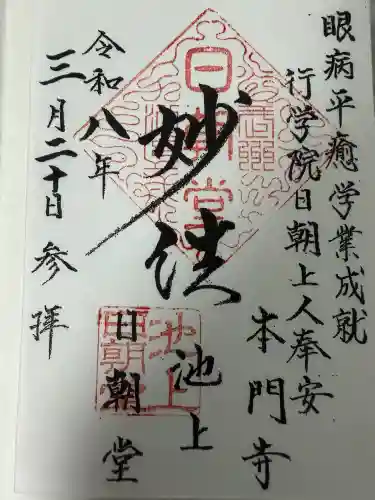 眼病平癒学業成就
行学院日朝上人奉安
本門寺
妙法
池上
日朝堂
令和八年
三月二十日参拝
日朝堂
池上
日朝堂